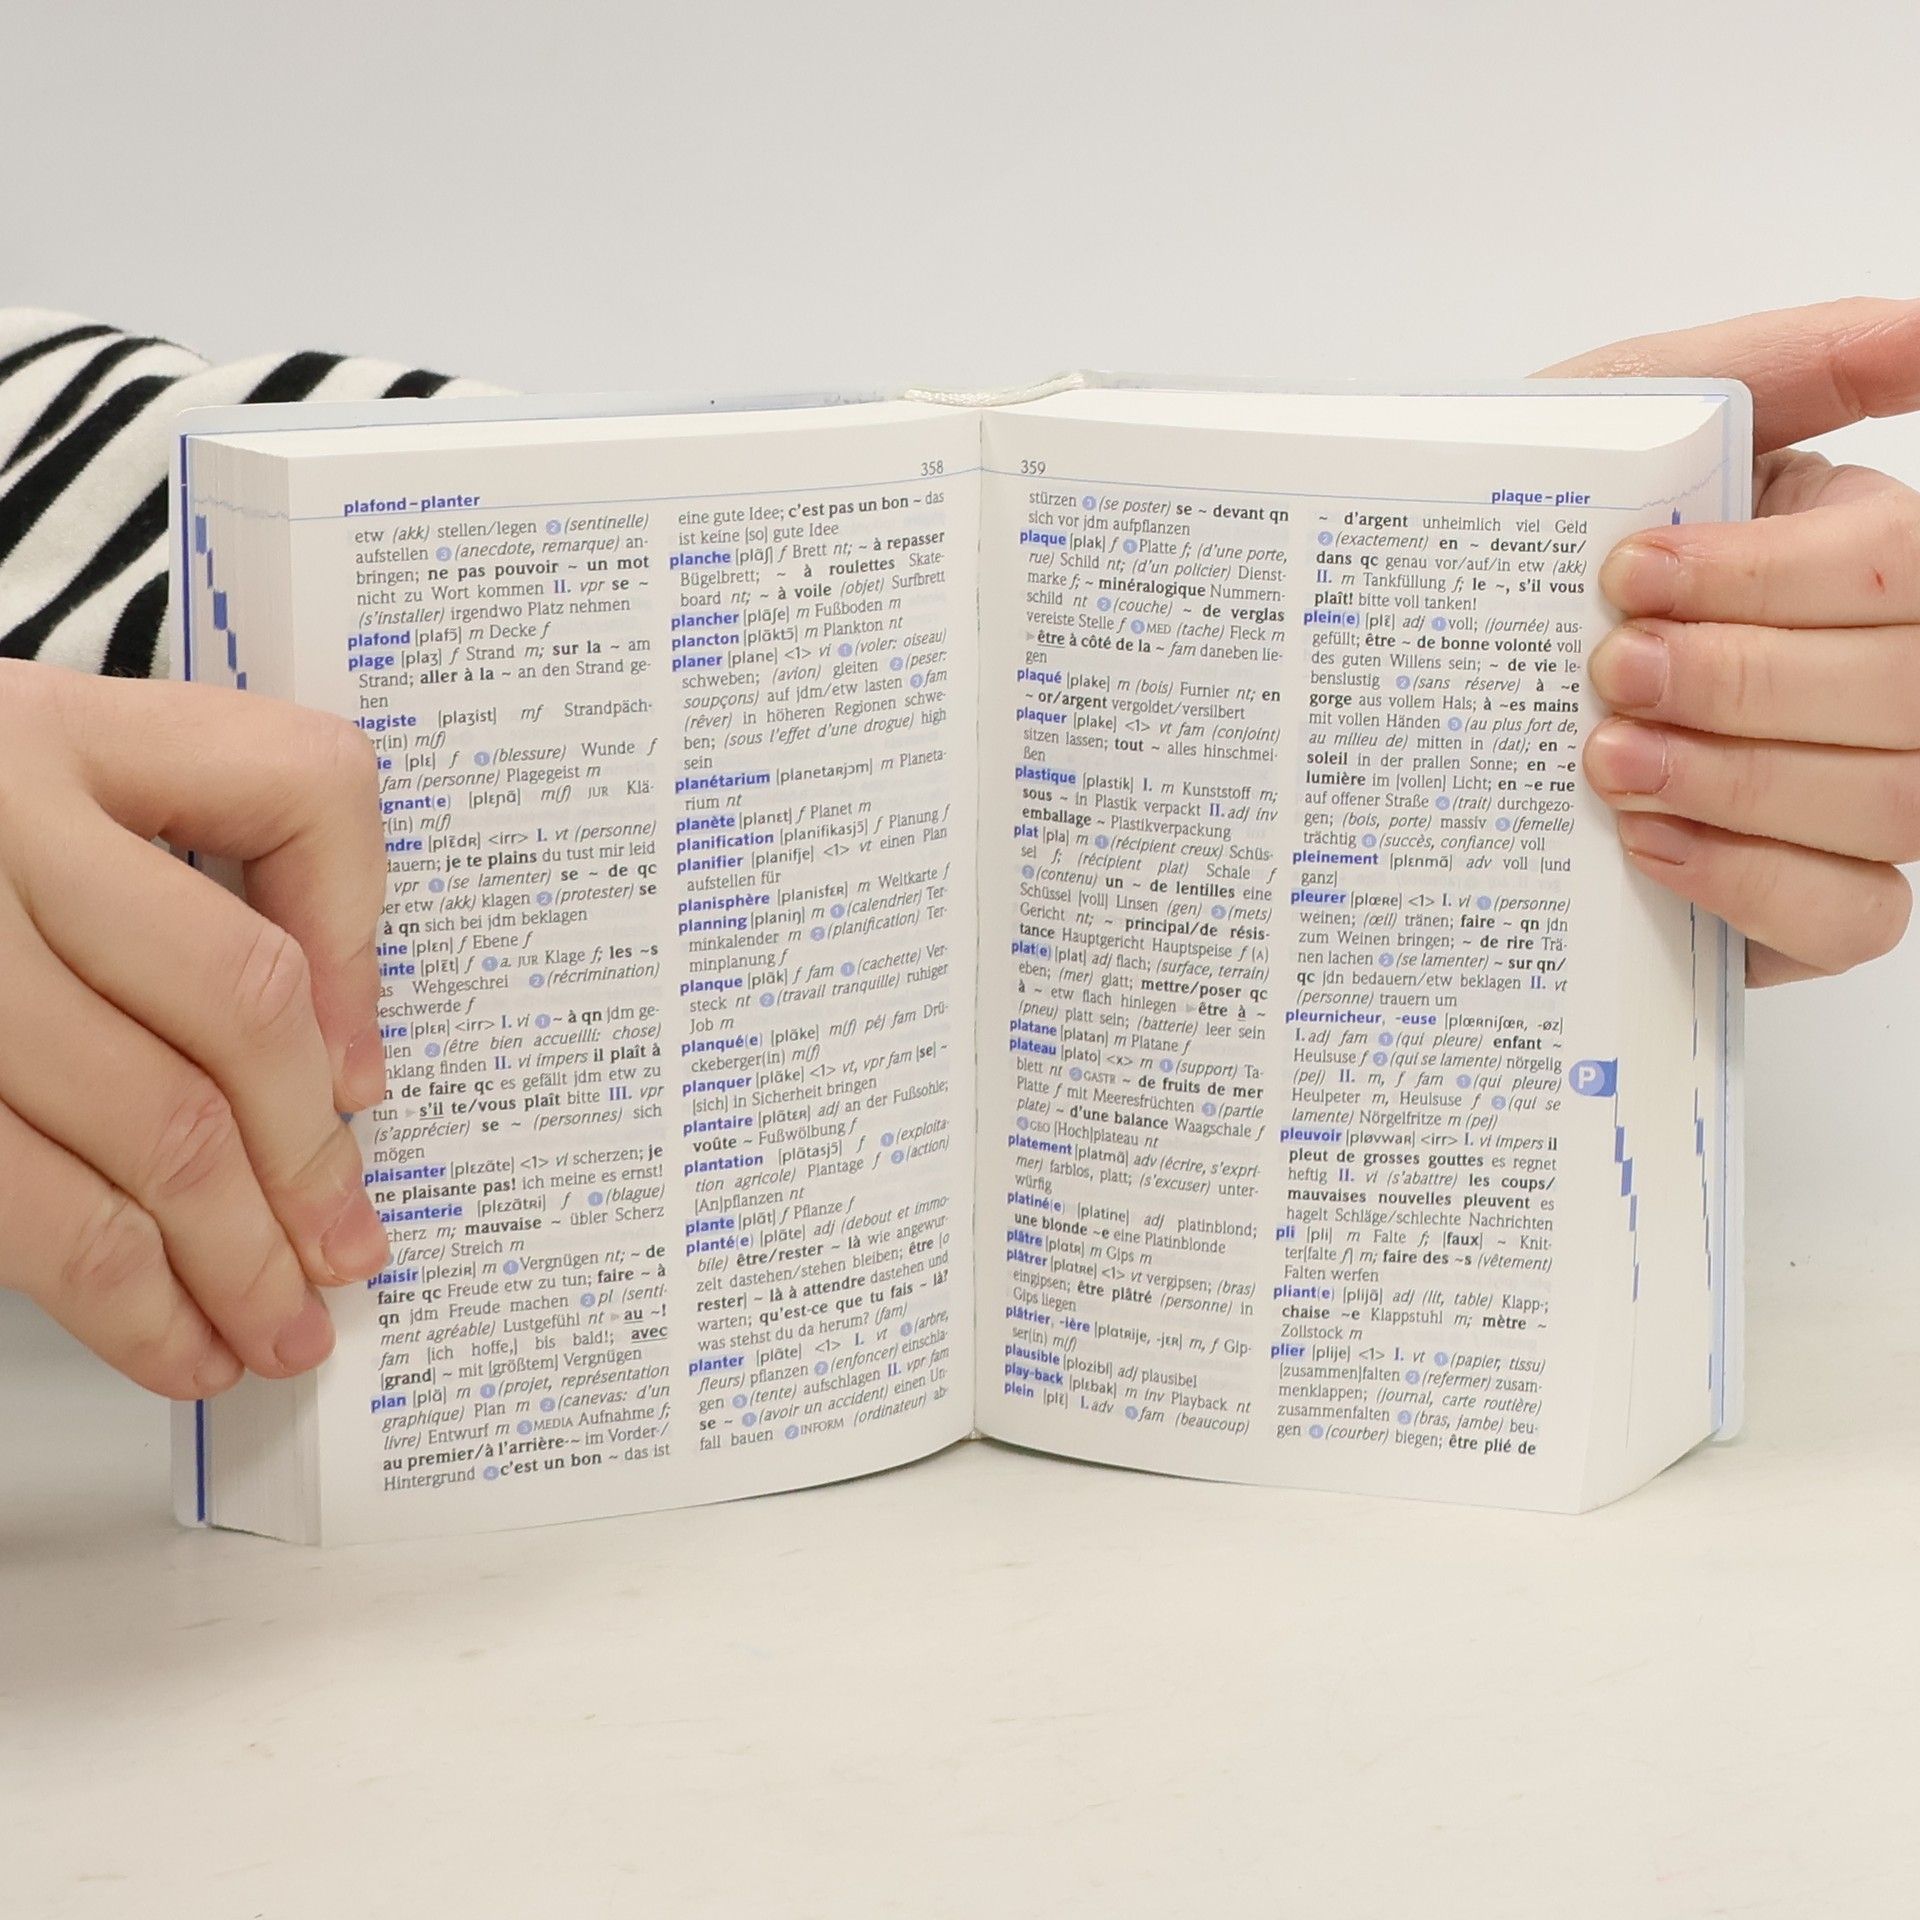 358
plafond–planter
etw (akk) stellen/legen ❷ (sentinelle)
aufstellen ❸ (anecdote, remarque) an-
bringen; ne pas pouvoir ~ un mot
nicht zu Wort kommen II. vpr se ~
(s'installer) irgendwo Platz nehmen
plafond [plafɔ̃] m Decke f
plage [plaʒ] f Strand m; sur la ~ am
Strand; aller à la ~ an den Strand ge-
hen
plagiste [plaʒist] mf Strandpäch-
er(in) m(f)
ie [plɛ] f ❶ (blessure) Wunde f
fam (personne) Plagegeist m
ignant(e) [plɛɲɑ̃] m(f) JUR Klä-
r(in) m(f)
ndre [plɛ̃dʀ] <irr> I. vt (personne)
dauern; je te plains du tust mir leid
vpr ❶ (se lamenter) se ~ de qc
er etw (akk) klagen ❷ (protester) se
à qn sich bei jdm beklagen
aine [plɛn] f Ebene f
inte [plɛ̃t] f ❶ a. JUR Klage f; les ~s
as Wehgeschrei ❷ (récrimination)
eschwerde f
aire [plɛʀ] <irr> I. vi ❶ ~ à qn jdm ge-
llen ❷ (être bien accueilli: chose)
nklang finden II. vi impers il plaît à
n de faire qc es gefällt jdm etw zu
tun ▸ s'il te/vous plaît bitte III. vpr
(s'apprécier) se ~ (personnes) sich
mögen
plaisanter [plɛzɑ̃te] <1> vi scherzen; je
ne plaisante pas! ich meine es ernst!
aisanterie [plɛzɑ̃tʀi] f ❶ (blague)
cherz m; mauvaise ~ übler Scherz
(farce) Streich m
plaisir [pleziʀ] m ❶ Vergnügen nt; ~ de
faire qc Freude etw zu tun; faire ~ à
qn jdm Freude machen ❷ pl (senti-
ment agréable) Lustgefühl nt ▸ au ~!
fam [ich hoffe,] bis bald!; avec
[grand] ~ mit [größtem] Vergnügen
plan [plɑ̃] m ❶ (projet, représentation
graphique) Plan m ❷ (canevas: d'un
livre) Entwurf m ❸ MEDIA Aufnahme f;
au premier/à l'arrière-~ im Vorder-/
Hintergrund ❹ c'est un bon ~ das ist
eine gute Idee; c'est pas un bon ~ das
ist keine [so] gute Idee
planche [plɑ̃ʃ] f Brett nt; ~ à repasser
Bügelbrett; ~ à roulettes Skate-
board nt; ~ à voile (objet) Surfbrett
plancher [plɑ̃ʃe] m Fußboden m
plancton [plɑ̃ktɔ̃] m Plankton nt
planer [plane] <1> vi ❶ (voler: oiseau)
schweben; (avion) gleiten ❷ (peser:
soupçons) auf jdm/etw lasten ❸ fam
(rêver) in höheren Regionen schwe-
ben; (sous l'effet d'une drogue) high
sein
planétarium [planetaʀjɔm] m Planeta-
rium nt
planète [planɛt] f Planet m
planification [planifikasjɔ̃] f Planung f
planifier [planifje] <1> vt einen Plan
aufstellen für
planisphère [planisfɛʀ] m Weltkarte f
planning [planiŋ] m ❶ (calendrier) Ter-
minkalender m ❷ (planification) Ter-
minplanung f
planque [plɑ̃k] f fam ❶ (cachette) Ver-
steck nt ❷ (travail tranquille) ruhiger
Job m
planqué(e) [plɑ̃ke] m(f) péj fam Drü-
ckeberger(in) m(f)
planquer [plɑ̃ke] <1> vt, vpr fam [se] ~
[sich] in Sicherheit bringen
plantaire [plɑ̃tɛʀ] adj an der Fußsohle;
voûte ~ Fußwölbung f
plantation [plɑ̃tasjɔ̃] f ❶ (exploita-
tion agricole) Plantage f ❷ (action)
[An]pflanzen nt
plante [plɑ̃t] f Pflanze f
planté(e) [plɑ̃te] adj (debout et immo-
bile) être/rester ~ là wie angewur-
zelt dastehen/stehen bleiben; être [o
rester] ~ là à attendre dastehen und
warten; qu'est-ce que tu fais ~ là?
was stehst du da herum? (fam)
planter [plɑ̃te] <1> I. vt ❶ (arbre,
fleurs) pflanzen ❷ (enfoncer) einschla-
gen ❸ (tente) aufschlagen II. vpr fam
se ~ ❶ (avoir un accident) einen Un-
fall bauen ❷ INFORM (ordinateur) ab-
359
plaque–plier
stürzen ❸ (se poster) se ~ devant qn
sich vor jdm aufpflanzen
plaque [plak] f ❶ Platte f; (d'une porte,
rue) Schild nt; (d'un policier) Dienst-
marke f; ~ minéralogique Nummern-
schild nt ❷ (couche) ~ de verglas
vereiste Stelle f ❸ MED (tache) Fleck m
▸ être à côté de la ~ fam daneben lie-
gen
plaqué [plake] m (bois) Furnier nt; en
~ or/argent vergoldet/versilbert
plaquer [plake] <1> vt fam (conjoint)
sitzen lassen; tout ~ alles hinschmei-
ßen
plastique [plastik] I. m Kunststoff m;
sous ~ in Plastik verpackt II. adj inv
emballage ~ Plastikverpackung
plat [pla] m ❶ (récipient creux) Schüs-
sel f; (récipient plat) Schale f
❷ (contenu) un ~ de lentilles eine
Schüssel [voll] Linsen (gen) ❸ (mets)
Gericht nt; ~ principal/de résis-
tance Hauptgericht Hauptspeise f (A)
plat(e) [plat] adj flach; (surface, terrain)
eben; (mer) glatt; mettre/poser qc
à ~ etw flach hinlegen ▸ être à ~
(pneu) platt sein; (batterie) leer sein
platane [platan] m Platane f
plateau [plato] <x> m ❶ (support) Ta-
blett nt ❷ GASTR ~ de fruits de mer
Platte f mit Meeresfrüchten ❸ (partie
plate) ~ d'une balance Waagschale f
❹ GEO [Hoch]plateau nt
platement [platmɑ̃] adv (écrire, s'expri-
mer) farblos, platt; (s'excuser) unter-
würfig
platiné(e) [platine] adj platinblond;
une blonde ~e eine Platinblonde
plâtre [plɑtʀ] m Gips m
plâtrer [plɑtʀe] <1> vt vergipsen; (bras)
eingipsen; être plâtré (personne) in
Gips liegen
plâtrier, -ière [plɑtʀije, -jɛʀ] m, f Gip-
ser(in) m(f)
plausible [plozibl] adj plausibel
play-back [plɛbak] m inv Playback nt
plein [plɛ̃] I. adv ❶ fam (beaucoup)
~ d'argent unheimlich viel Geld
❷ (exactement) en ~ devant/sur/
dans qc genau vor/auf/in etw (akk)
II. m Tankfüllung f; le ~, s'il vous
plaît! bitte voll tanken!
plein(e) [plɛ̃] adj ❶ voll; (journée) aus-
gefüllt; être ~ de bonne volonté voll
des guten Willens sein; ~ de vie le-
benslustig ❷ (sans réserve) à ~e
gorge aus vollem Hals; à ~es mains
mit vollen Händen ❸ (au plus fort de,
au milieu de) mitten in (dat); en ~
soleil in der prallen Sonne; en ~e
lumière im [vollen] Licht; en ~e rue
auf offener Straße ❹ (trait) durchgezo-
gen; (bois, porte) massiv ❺ (femelle)
trächtig ❻ (succès, confiance) voll
pleinement [plɛnmɑ̃] adv voll [und
ganz]
pleurer [plœʀe] <1> I. vi ❶ (personne)
weinen; (œil) tränen; faire ~ qn jdn
zum Weinen bringen; ~ de rire Trä-
nen lachen ❷ (se lamenter) ~ sur qn/
qc jdn bedauern/etw beklagen II. vt
(personne) trauern um
pleurnicheur, -euse [plœʀniʃœʀ, -øz]
I. adj fam ❶ (qui pleure) enfant ~
Heulsuse f ❷ (qui se lamente) nörgelig
(pej) II. m, f fam ❶ (qui pleure)
Heulpeter m, Heulsuse f ❷ (qui se
lamente) Nörgelfritze m (pej)
pleuvoir [pløvwaʀ] <irr> I. vi impers il
pleut de grosses gouttes es regnet
heftig II. vi (s'abattre) les coups/
mauvaises nouvelles pleuvent es
hagelt Schläge/schlechte Nachrichten
pli [pli] m Falte f; [faux] ~ Knit-
ter[falte f] m; faire des ~s (vêtement)
Falten werfen
pliant(e) [plijɑ̃] adj (lit, table) Klapp-;
chaise ~e Klappstuhl m; mètre ~
Zollstock m
plier [plije] <1> I. vt ❶ (papier, tissu)
[zusammen]falten ❷ (refermer) zusam-
menklappen; (journal, carte routière)
zusammenfalten ❸ (bras, jambe) beu-
gen ❹ (courber) biegen; être plié de
P